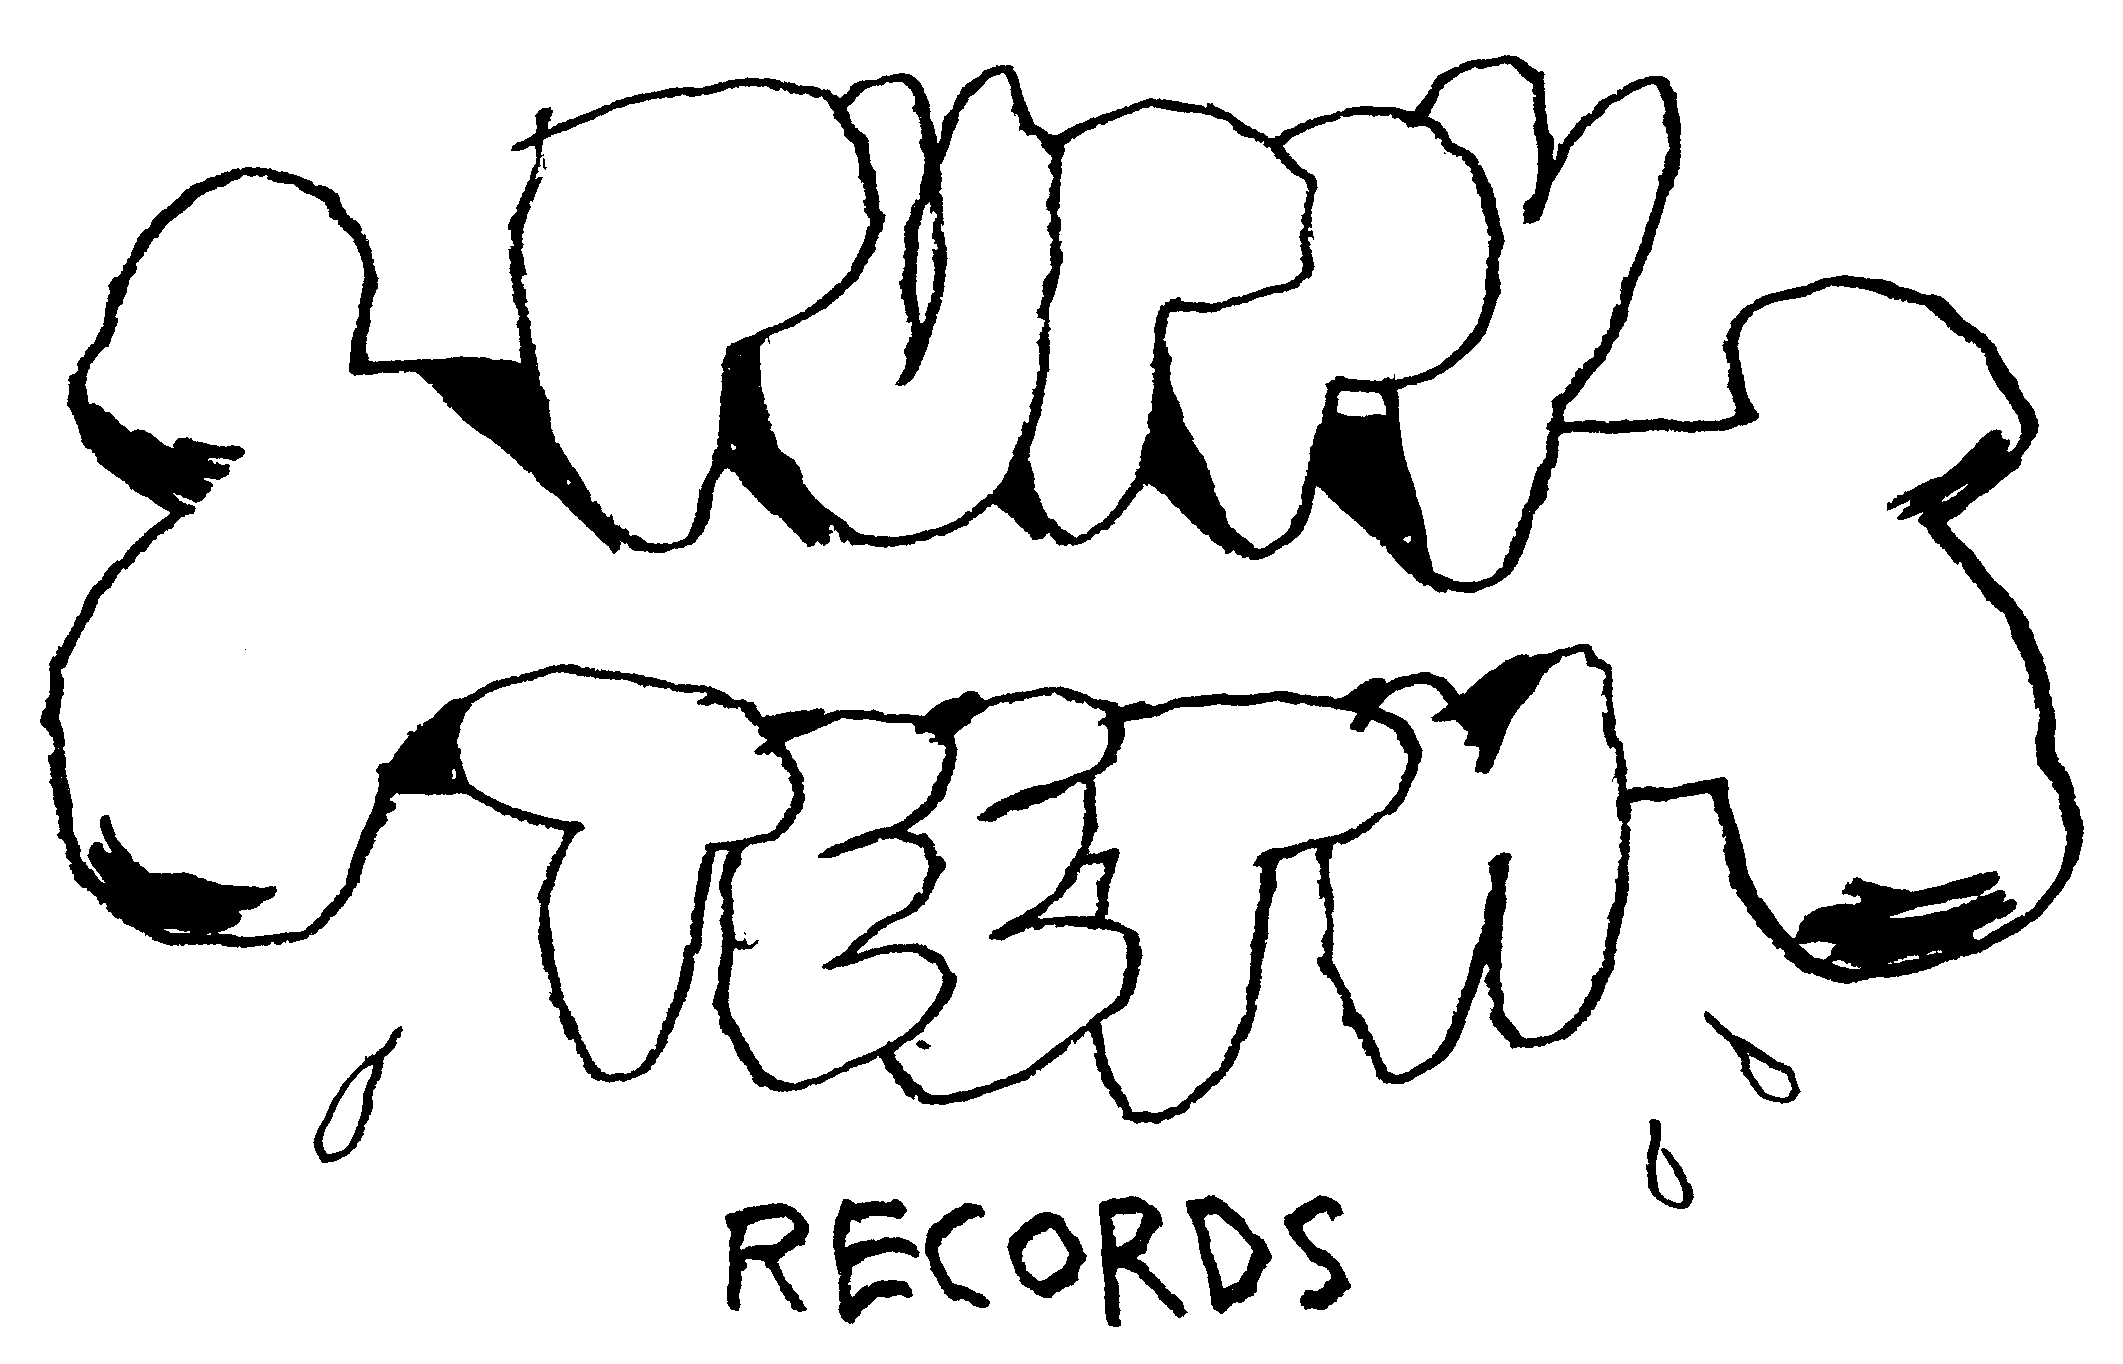 PUPPY
TEETH
RECORDS